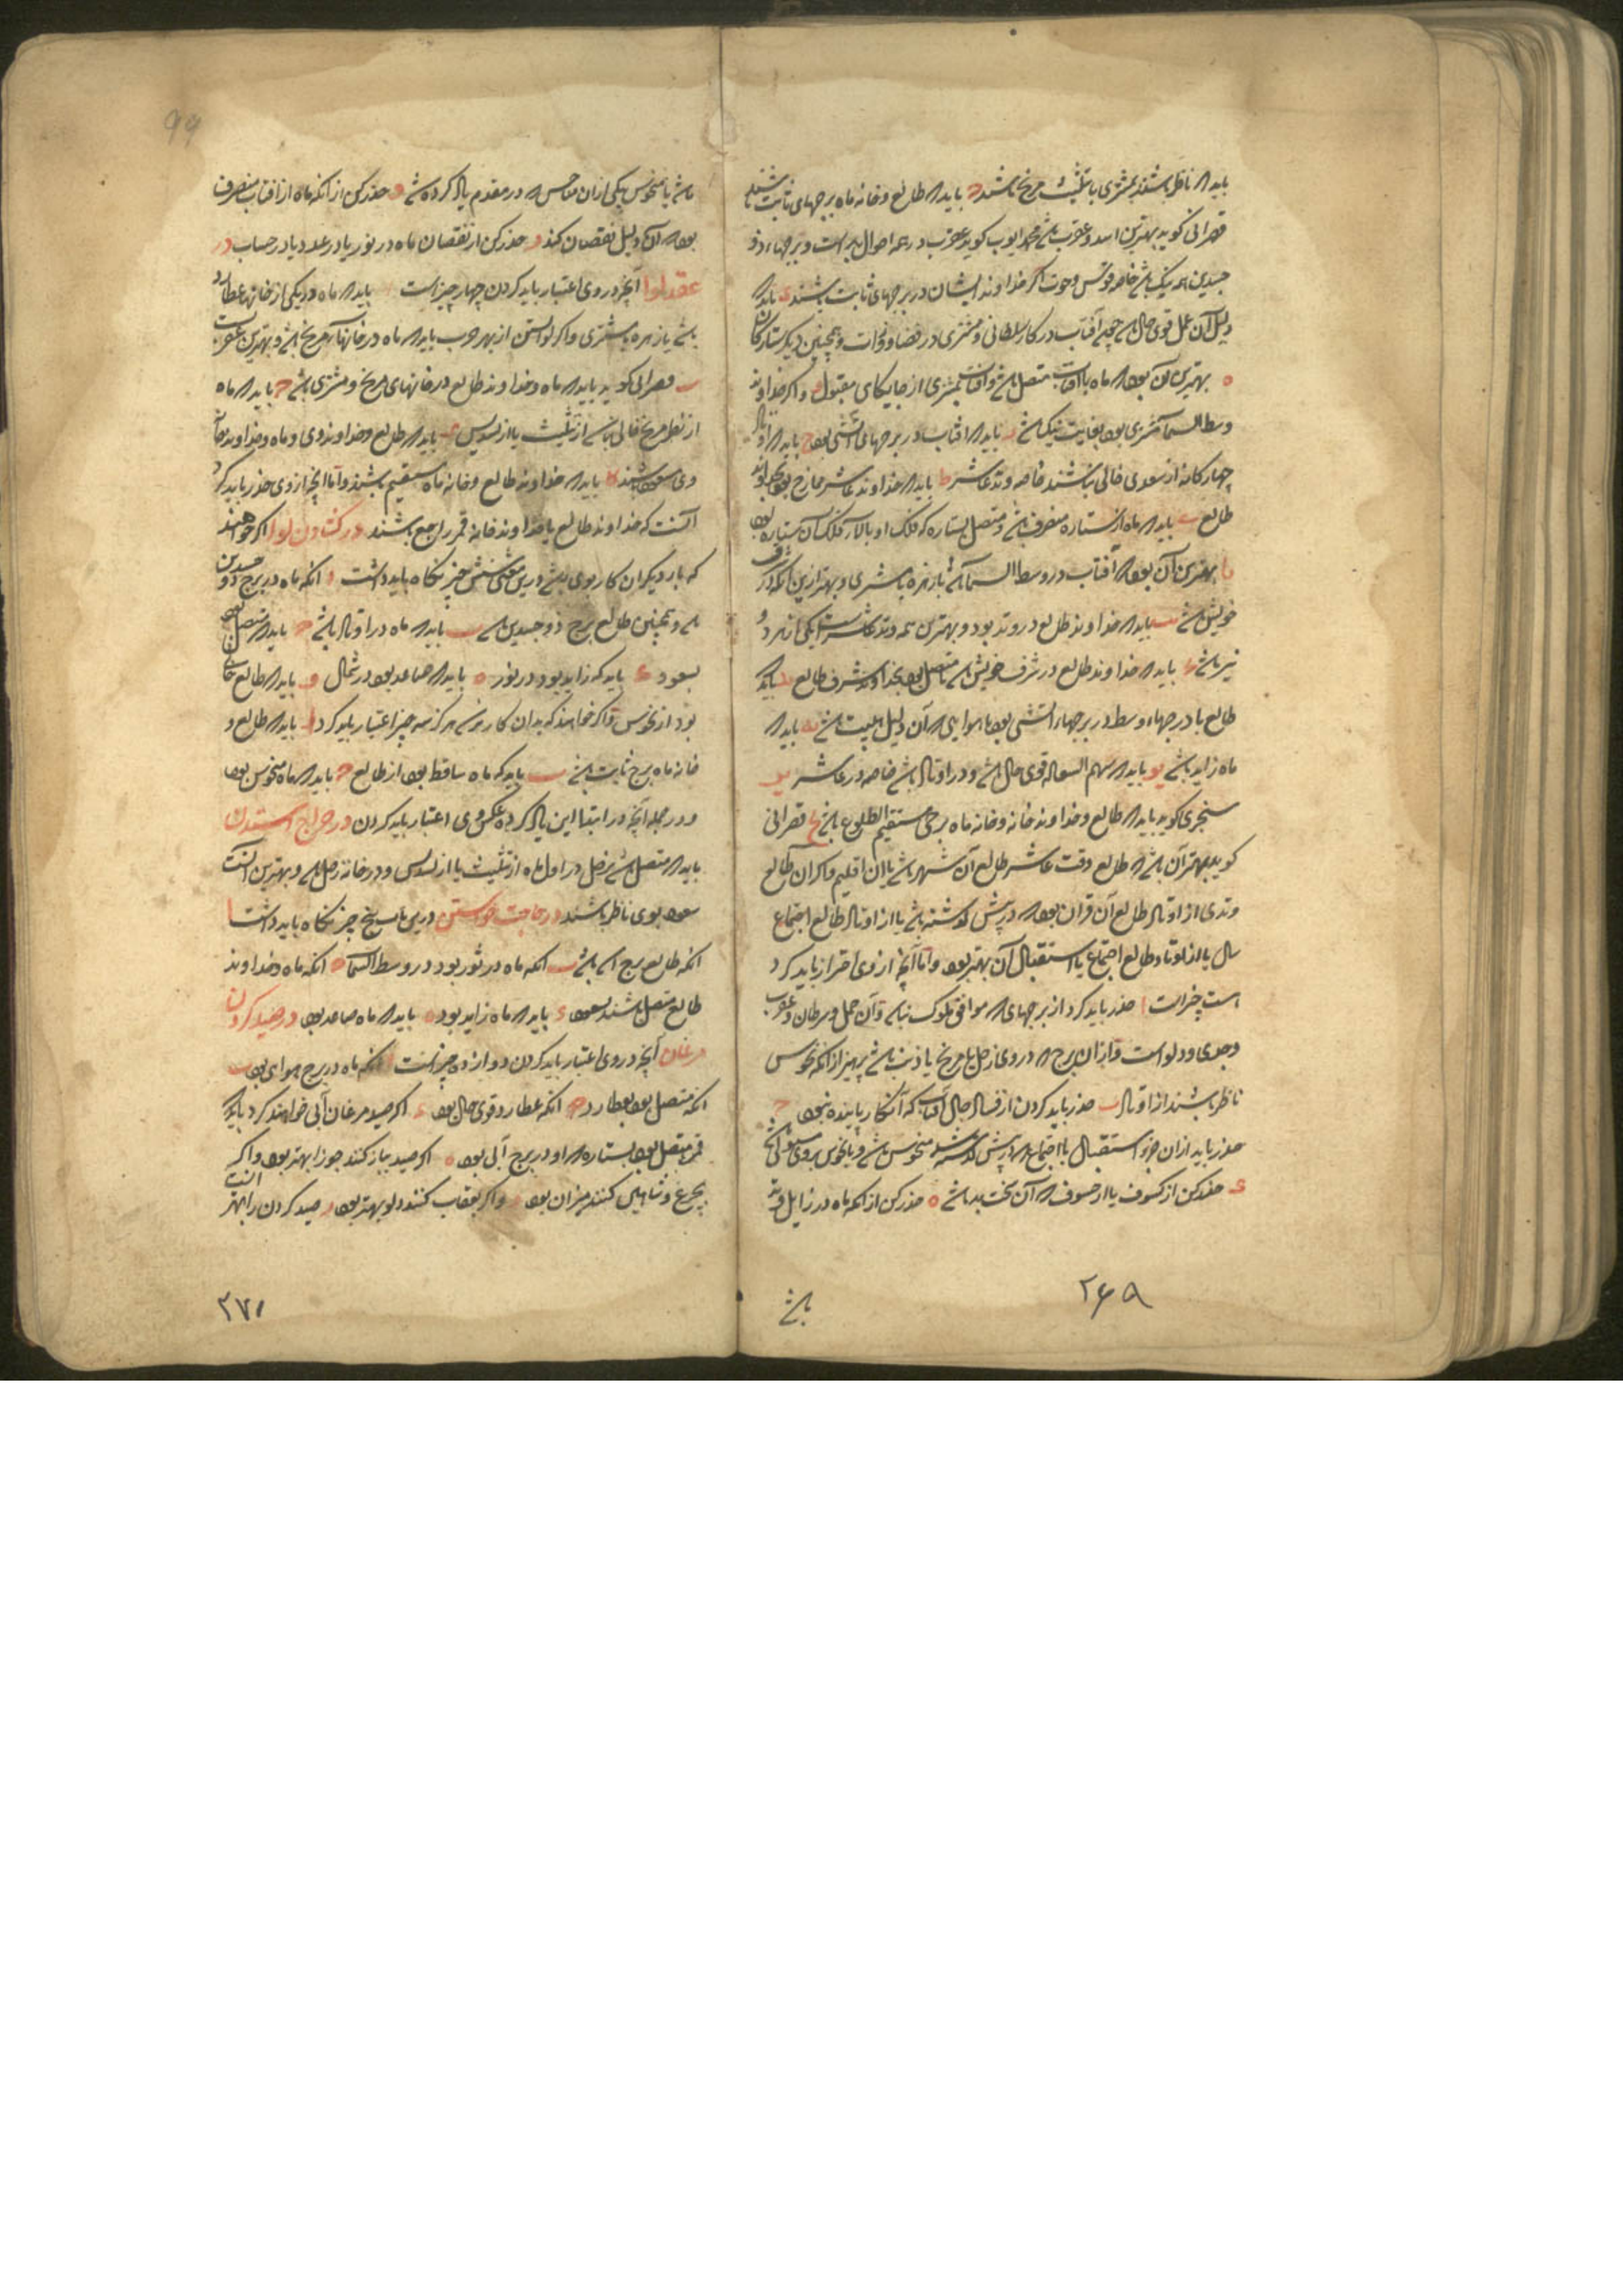 باید که ناظر باشند بمشتری یا بتثلیث مریخ باشد ج باید که طالع و خانه ماه برجهای ثابت باشند
قصرانی کوید بهترین اسد و عقرب باشد محمد ایوب کوید عقرب در همه احوال بد است و برجهاء ذو
جسدین هم نیک باشد خاصه قوس و حوت اکر خداوند ایشان در برجهای ثابت باشند د باید که
دلیل آن عمل قوی حال باشد چون آفتاب در کار سلطانی و مشتری در قضا و همچنین دیکر ستارکان
ه بهترین آن بود که ماه باافتاب متصل باشد و افتاب بمشتری از جایکای مقبول و اکر خداوند
وسط السما مشتری بود بغایت نیک باشد باید که افتاب در برجهای آتشی بود ح باید که اوتاد
چهارکانه از سعدی خالی نباشند خاصه وتد عاشر ط باید که خداوند عاشر ممازج بود بخداوند
طالع ی باید که ماه از ستاره منصرف باشد و متصل بستاره که فلک او بالاء فلک آن ستاره بود
یا بهترین آن بود که آفتاب در وسط السماء باشد یا زهره یا مشتری و بهتر ازین آنکه در شرف
خویش باشد یب باید که خداوند طالع در وتد بود و بهترین همه وتد عاشرست یکی از هر دو
نیر باشد باید که خداوند طالع در شرف خویش باشد متصل بود بخداوند شرف طالع ید باید که
طالع یا درجهاء وسط در برجهاء آتشی بود یا هوایی که آن دلیل هیبت باشد یه باید که
ماه زاید باشد یو باید که سهم السعاده قوی حال باشد و در اوتاد باشد خاصه در عاشر یز
سنجری کوید باید که طالع و خداوند خانه و خانه ماه برجی مستقیم الطلوع باشد یح قصرانی
کوید بهتر آن باشد که طالع وقت عاشر طالع آن شهر باشد یا آن اقلیم و اکر آن طالع
وتدی از اوتاد طالع آن قران بود که در پیش کذشته باشد یا از اوتاد طالع اجتماع
سال یا از اوتاد طالع اجتماع یا استقبال آن بهتر بود و اما آنچه از وی احتراز باید کرد
هست چیزاست ا حذر باید کرد از برجهای که موافق ملوک نباشد و آن حمل و سرطان و عقرب
و جدی و دلو است و از آن برج که در وی زحل یا مریخ یا ذنب باشد پرهیز از آنکه نحوس
ناظر باشند از اوتاد ب حذر باید کردن از فساد حال آفتاب که آن کار پاینده نبود ج
حذر باید از آن جزو استقبال یا اجتماع که در پیش کذشته باشد منحوس باشد
د حذر کن از کسوف یا از خسوف که آن سخت بد باشد ه حذر کن از آنکه ماه در زایل وتد
باشد
۲۶۹
99
باشد یا بمنحوس یکی از آن مناحس که در مقدم یاد کرده شد و حذر کن از آنکه ماه از افتاب منصرف
بود که آن دلیل نقصان کند ز حذر کن از نقصان ماه در نور یا در عدد یا در حساب در
عقد لوا آنچه در وی اعتبار باید کردن چهار چیز است باید که ماه در یکی از خانهاء عطارد
باشد یا زهره یا مشتری و اکر لوا بستن از بهر حرب باید که ماه در خانهاء مریخ باشد و بهترین عقرب است
ب قصرانی کوید باید که ماه و خداوند طالع در خانهای مریخ و مشتری باشد ج باید که ماه
از نظر مریخ خالی نباشد از تثلیث یا از تسدیس د باید که طالع و خداوند وی و ماه و خداوند خانه
وی مسعود باشند ه باید که خداوند طالع و خانه ماه مستقیم باشند و اما آنچه از وی حذر باید کرد
آنست که خداوند طالع یا خداوند خانه قمر راجع باشند در کشادن لوا اکر خواهند
که بار دیکر آن کار بوی باشد درین معنی شش چیز نکاه باید داشت ا آنکه ماه در برج ذو جسدین
باشد و همچنین طالع برج ذو جسدین باشد ب باید که ماه در اوتاد باشد ج باید که متصل بود
بسعود د باید که زاید بود در نور ه باید که صاعد بود در شمال و باید که طالع خالی
بود از نحوس و اکر خواهند که بدان کار نرسد هرکز سه چیز اعتبار باید کرد ا باید که طالع و
خانه ماه برج ثابت باشد ب باید که ماه ساقط بود از طالع ج باید که ماه منحوس بود
و در جمله آنچه در ابتدا این یاد کرده عکس وی اعتبار باید کردن در خراج استدن
باید که متصل باشد بزحل در اول ماه از تثلیث یا از تسدیس و در خانه زحل باشد و بهترین آنست
سعود بوی ناظر باشند در حاجت خواستن درین باب پنج چیز نکاه باید داشت ا
آنکه طالع برج باشد ب آنکه ماه در ثور بود در وسط السماء ج آنکه ماه و خداوند
طالع متصل باشند بسعود د باید که ماه زاید بود ه باید که ماه صاعد بود در صید کردن
مرغان آنچه در وی اعتبار باید کردن دوازده چیز است ا آنکه ماه در برج هوای بود ب
آنکه متصل بود بعطارد ج آنکه عطارد قوی حال بود د اکر صید مرغان آبی خواهند کرد باید که
قمر متصل بود بستاره که او در برج آبی بود ه اکر صید بباز کنند جوزا بهتر بود و اکر
بچرغ و شاهین کنند میزان بود و و اکر بعقاب کنند دلو بهتر بود ز صید کردن را بهتر آنست
۲۷۱